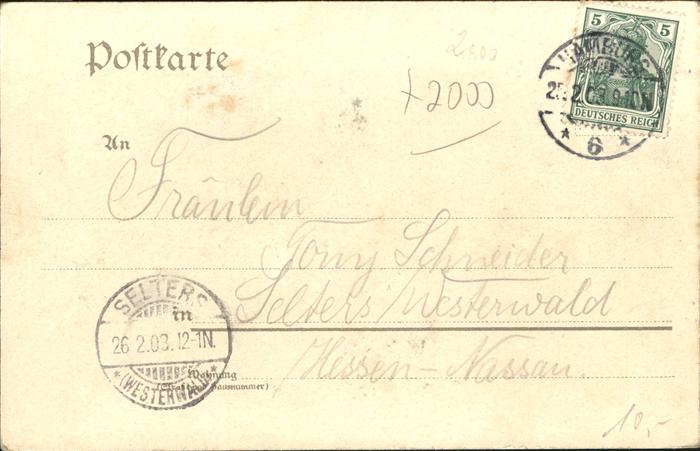 Postkarte
2000
+2000
5 5
DEUTSCHES REICH
HAMBURG
25.2.03.9-10N
* 6 *
An
Fräulein
Tony Schneider
Selters Westerwald
in
Hessen-Nassau.
SELTERS
26.2.03.12-1N.
* (WESTERWALD) *
Wohnung
(Straße und Hausnummer)
10,-